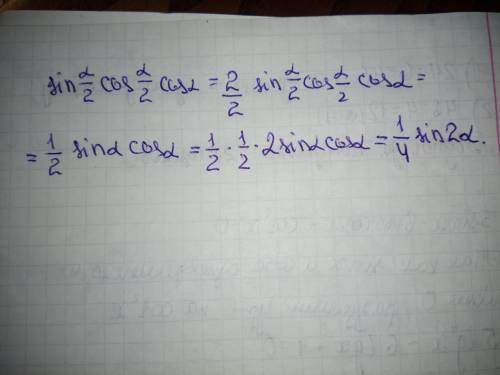 sin α/2 cos α/2 cosα = 2/2 sin α/2 cos α/2 cosα =
= 1/2 sinα cosα = 1/2 · 1/2 · 2sinα cosα = 1/4 sin2α.